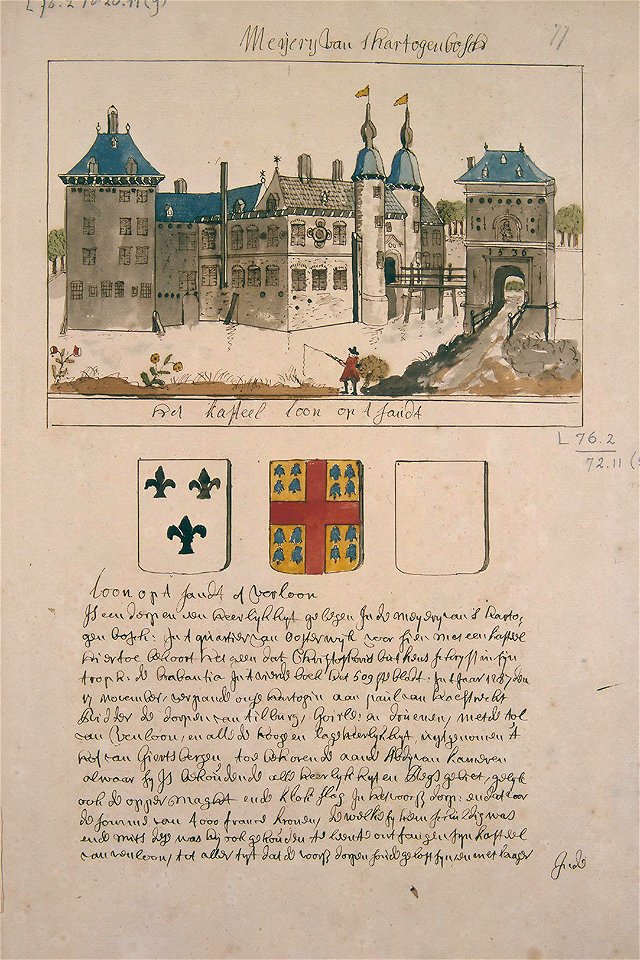 L 76.2
77
Meyery van s hartogenbosch
1536
het kasteel loon op t sandt
L 76.2
72.11
loon op t sandt of Venloon
Is een dorp en een heerlykhyt gelegen In de meyery van s harto-
gen bosch: In t quartier van oosterwyk voor sien met een kasteel
hier toe behoort het geen dat Christophorus butkens schryft in syn
troph: de brabantia In t boek het 509 blat: In t Jaar den
17 november, verpande onse hartogin aan paul van haestrecht
Ridder de dorpen van tilburg, Goirle: en drunen, met de tol
van Venloon, en alle de hooge en lage heerlykhyt uytgenomen t
hof van Giersbergen, toe behorende aan d' Abdy van kameren
alwaar hy Is behoudende alle heerlykhyt en gebiet, gelyk
ook de opper maght ende klok slag In het voors dorp: en dat voor
de somme van 4000 france kronen, de welke sy hem schuldig was
ende mits dese was hy ook gehouden te leene ontfangen syn kasteel
van venloon, tot aller tyt dat de voors dorpen soude gelost syn en met laager
Inde